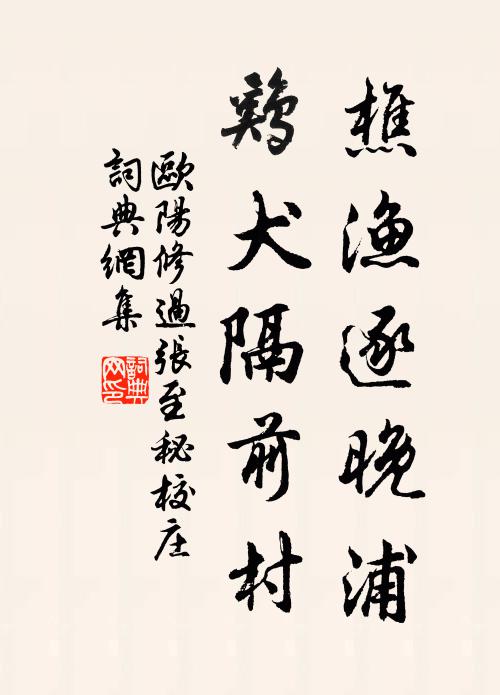 樵漁逐晚浦
鷄犬隔前村
歐陽修過張至秘校庄
詞典網集
詞典
网印